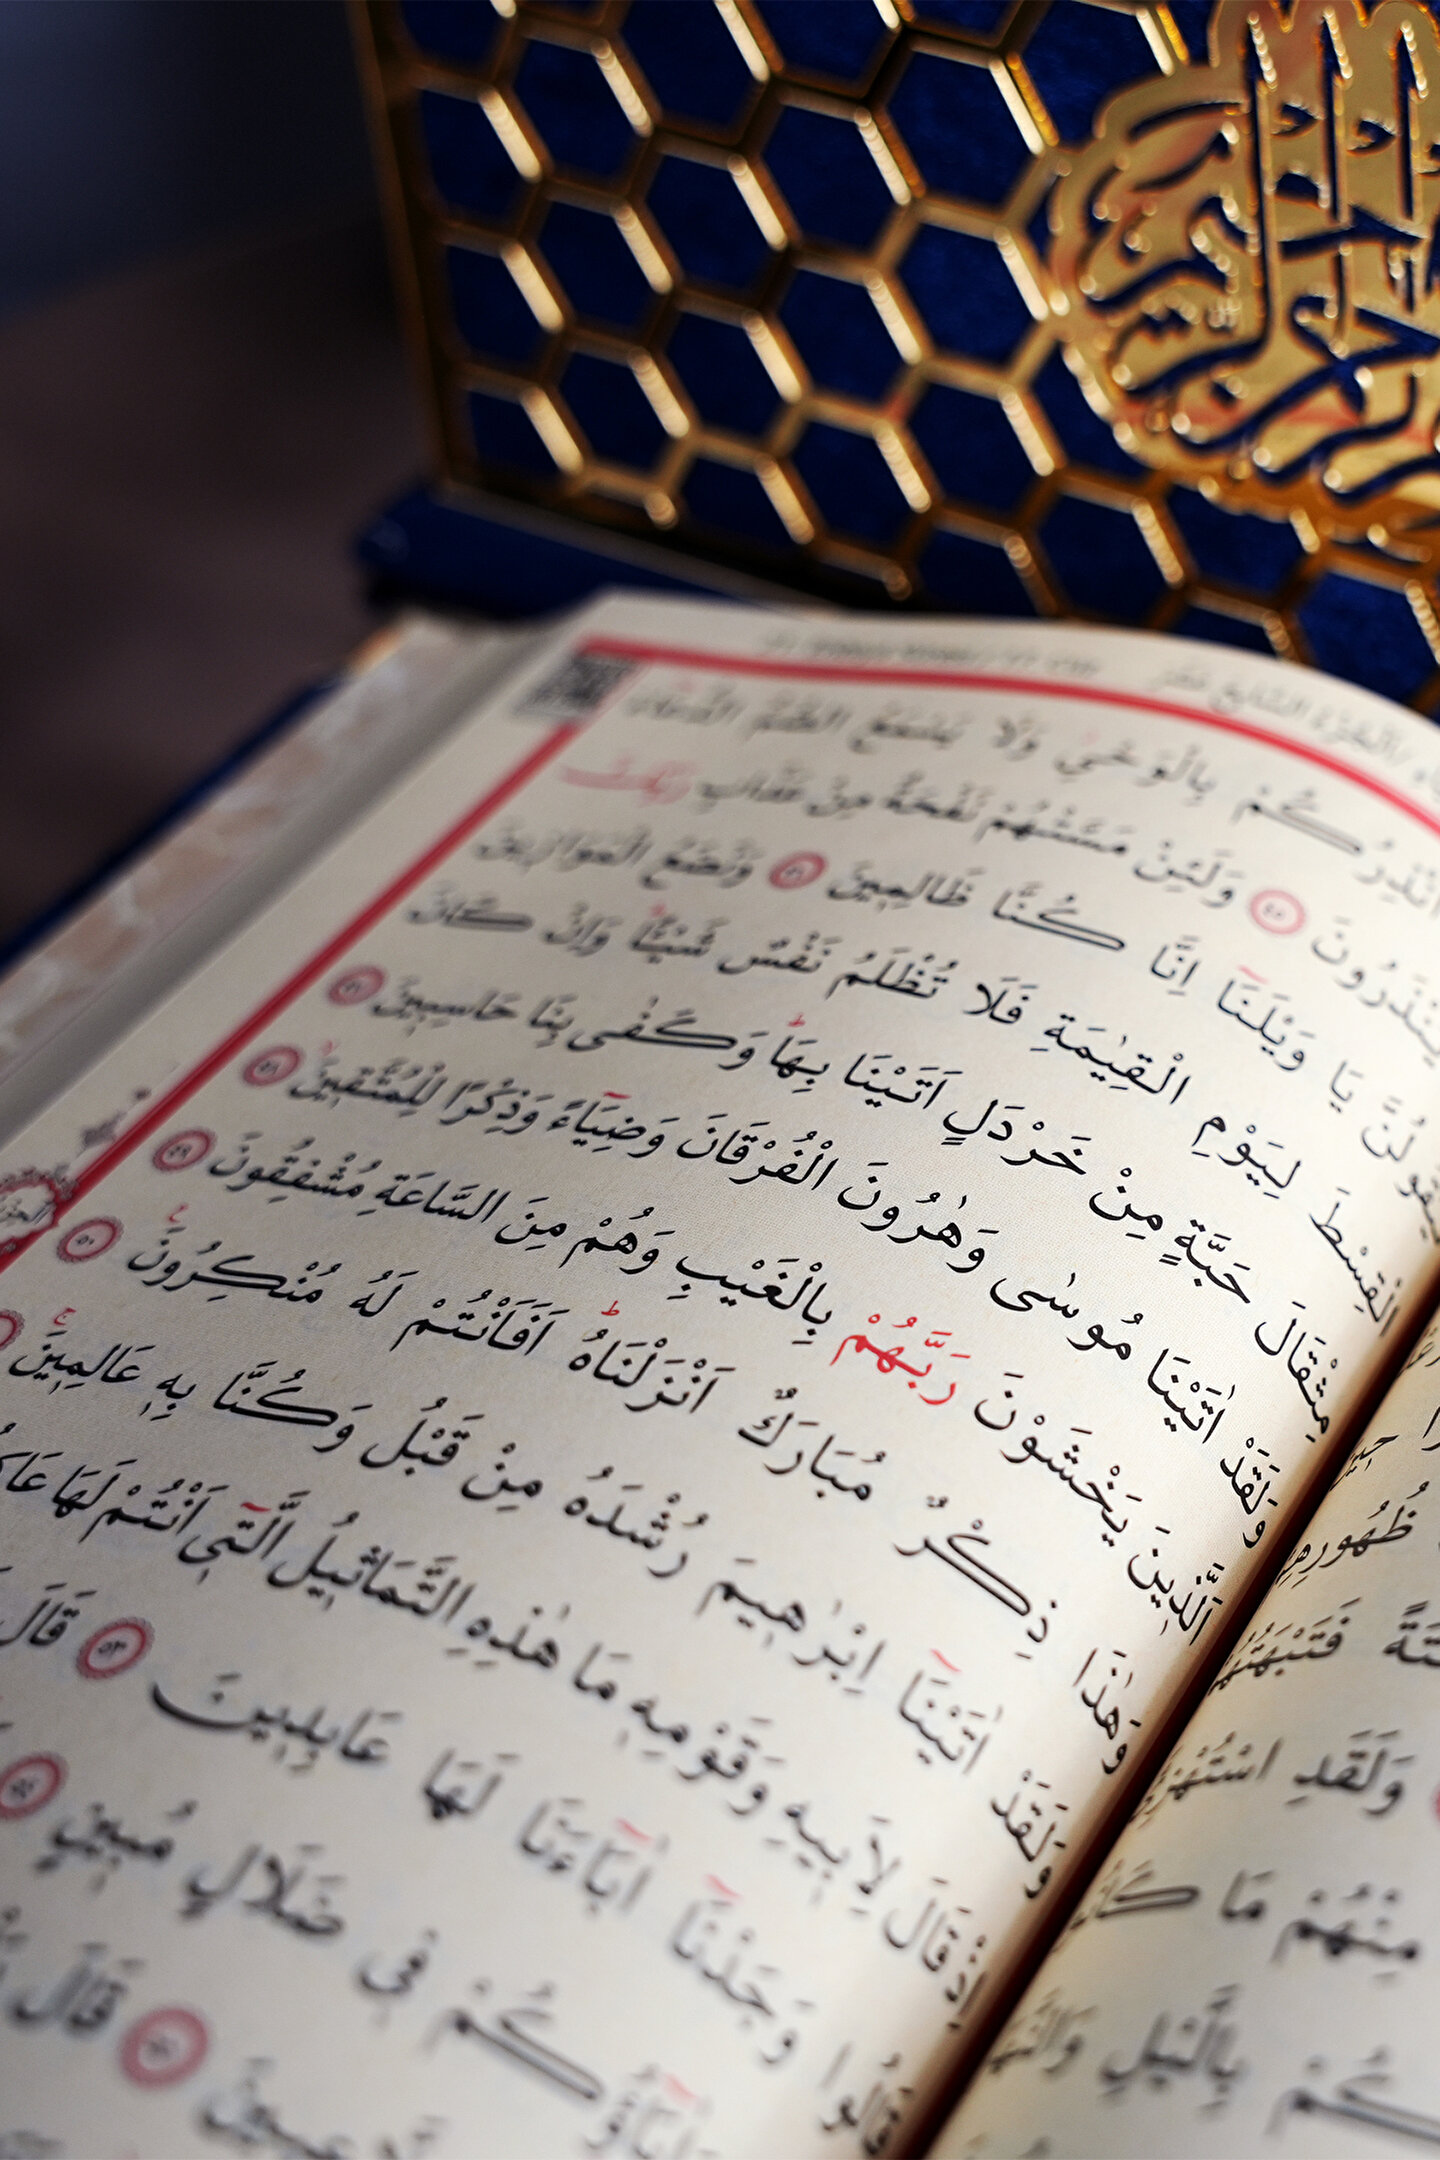 اُنْذِرُكُمْ بِالْوَحْيِ وَلَا يَسْمَعُ الصُّمُّ الدُّعَٓاءَ
يُنْذَرُونَ ﴿٤٥﴾ وَلَئِنْ مَسَّتْهُمْ نَفْحَةٌ مِنْ عَذَابِ رَبِّكَ
لَيَقُولُنَّ يَا وَيْلَنَٓا اِنَّا كُنَّا ظَالِمِينَ ﴿٤٦﴾ وَنَضَعُ الْمَوَازِينَ
الْقِسْطَ لِيَوْمِ الْقِيٰمَةِ فَلَا تُظْلَمُ نَفْسٌ شَيْـًٔا وَاِنْ كَانَ
مِثْقَالَ حَبَّةٍ مِنْ خَرْدَلٍ اَتَيْنَا بِهَاۜ وَكَفٰى بِنَا حَاسِبِينَ ﴿٤٧﴾
وَلَقَدْ اٰتَيْنَا مُوسٰى وَهٰرُونَ الْفُرْقَانَ وَضِيَٓاءً وَذِكْرًا لِلْمُتَّقِينَۙ ﴿٤٨﴾
اَلَّذِينَ يَخْشَوْنَ رَبَّهُمْ بِالْغَيْبِ وَهُمْ مِنَ السَّاعَةِ مُشْفِقُونَ ﴿٤٩﴾
وَهٰذَا ذِكْرٌ مُبَارَكٌ اَنْزَلْنَاهُۜ اَفَاَنْتُمْ لَهُ مُنْكِرُونَ۟ ﴿٥٠﴾
وَلَقَدْ اٰتَيْنَٓا اِبْرٰهِيمَ رُشْدَهُ مِنْ قَبْلُ وَكُنَّا بِهِ عَالِمِينَۚ
اِذْ قَالَ لِاَبِيهِ وَقَوْمِهِ مَا هٰذِهِ التَّمَاثِيلُ الَّتِٓي اَنْتُمْ لَهَا
قَالُوا وَجَدْنَٓا اٰبَٓاءَنَا لَهَا عَابِدِينَ ﴿٥٣﴾ قَالَ
وَاٰبَٓاؤُ۬كُمْ فِي ضَلَالٍ مُبِينٍ ﴿٥٤﴾
قَالَ
ظُهُورِهِمْ
فَتَبْهَتُهُمْ
وَلَقَدِ اسْتُهْزِئَ
مِنْهُمْ مَا كَانُوا
بِالَّيْلِ وَالنَّهَارِ